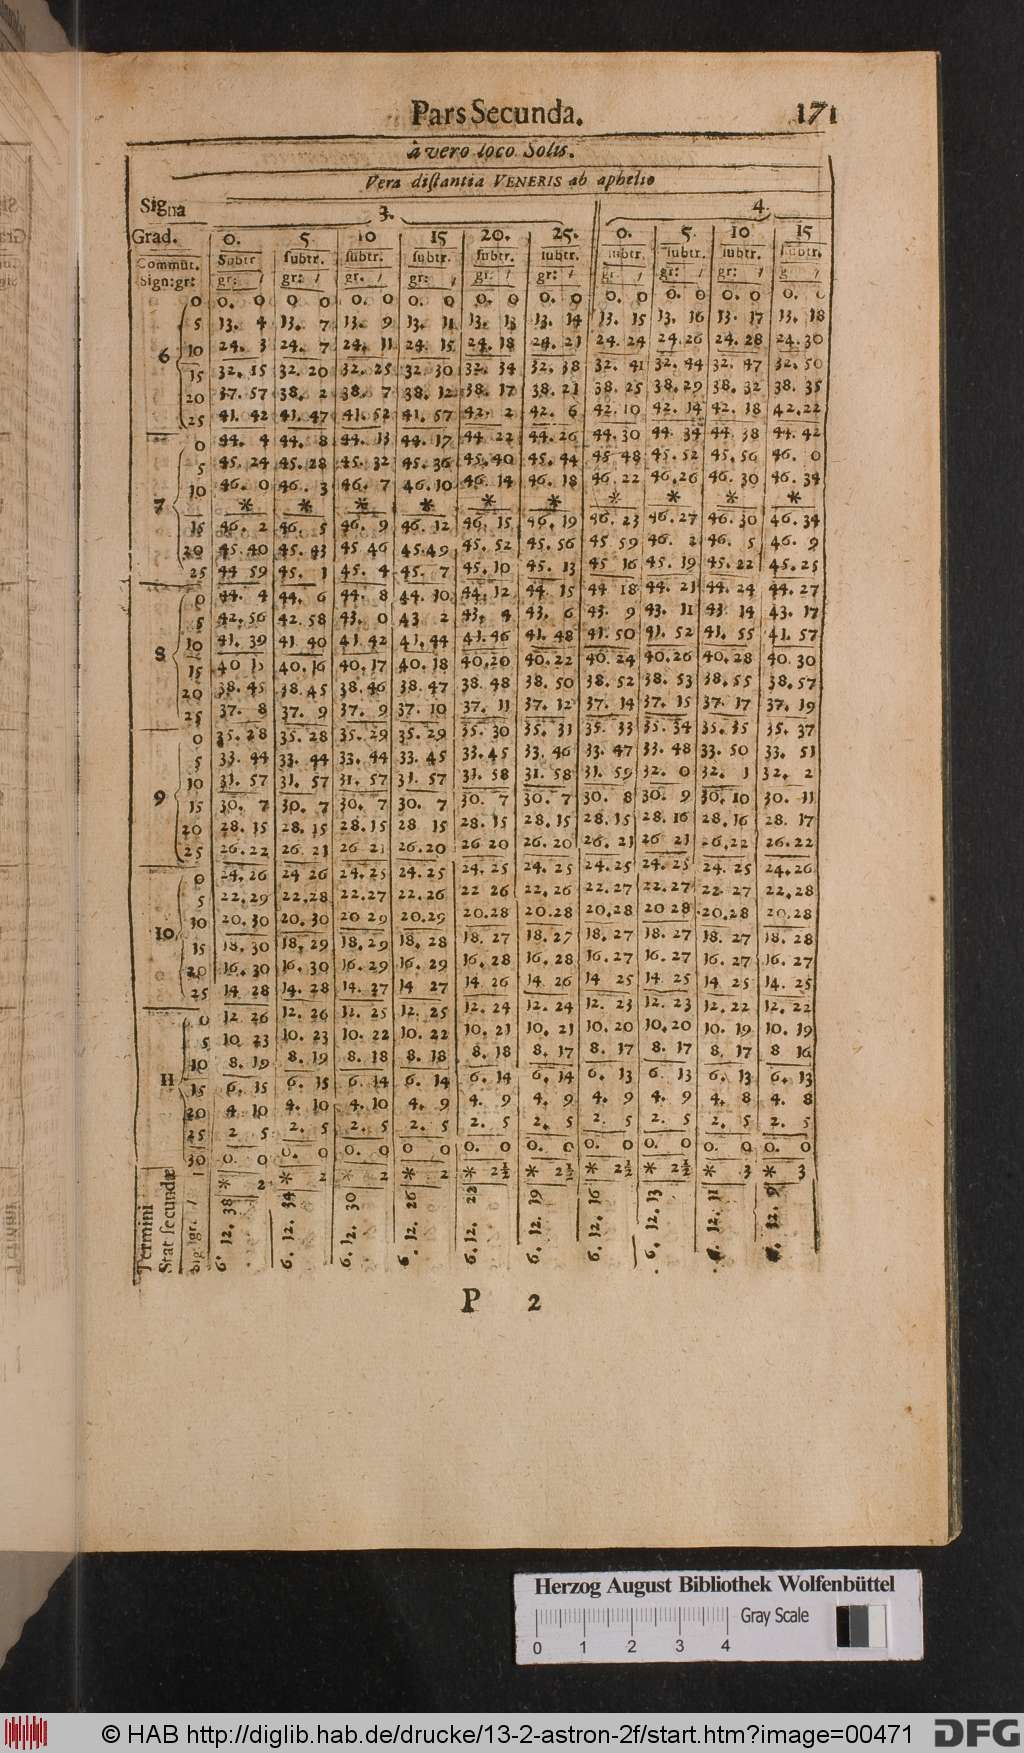 Pars Secunda. 171
à vero loco Solis.
Vera distantia VENERIS ab aphelio
Signa 3. 4.
Grad. 0. 5 10 15 20. 25. 0. 5. 10 15
Commut. Subtr subtr. subtr. subtr. subtr. subtr. subtr. subtr. subtr. subtr.
Sign:gr: gr: / gr: / gr. / gr: / gr: / gr: / gr / gr: / gr: / g /
0 0. 0 0 0 0. 0 0. 0 0. 0 0. 0 0. 0 0. 0 0. 0 0.
5 13. 4 13. 7 13. 9 13. 11 13. 13 13. 14 13. 15 13. 16 13. 17 13. 18
6 10 24. 3 24. 7 24. 11 24. 15 24. 18 24. 21 24. 24 24. 26 24. 28 24. 30
15 32. 15 32. 20 32. 25 32 30 32. 34 32. 38 32. 41 32. 44 32. 47 32. 50
20 37. 57 38. 2 38. 7 38. 12 38. 17 38. 21 38. 25 38. 29 38. 32 38. 35
25 41. 42 41. 47 41. 52 41. 57 42. 2 42. 6 42. 10 42. 14 42. 18 42. 22
0 44. 4 44. 8 44. 13 44. 17 44 22 44. 26 44. 30 44. 34 44. 38 44. 42
5 45. 24 45. 28 45. 32 45. 36 45. 40 45. 44 45 48 45. 52 45. 56 46. 0
10 46. 0 46. 3 46. 7 46. 10 46. 14 46. 18 46. 22 46. 26 46. 30 46. 34
7 * * * * * * * * * *
15 46. 2 46. 5 46. 9 46. 12 46. 15 46. 19 46. 23 46. 27 46. 30 46. 34
20 45. 40 45. 43 45 46 45. 49 45. 52 45. 56 45 59 46. 2 46. 5 46. 9
25 44 59 45. 1 45. 4 45. 7 45. 10 45. 13 45 16 45. 19 45. 22 45. 25
0 44. 4 44. 6 44. 8 44. 10 44. 12 44. 15 44 18 44. 21 44. 24 44. 27
5 42. 56 42. 58 43. 0 43 2 43. 4 43. 6 43. 9 43. 11 43 14 43. 17
8 10 41. 39 41 40 41. 42 41. 44 41. 46 41. 48 41. 50 41. 52 41. 55 41. 57
15 40 40. 16 40. 17 40. 18 40. 20 40. 22 40. 24 40. 26 40. 28 40 30
20 38. 45 38. 45 38. 46 38. 47 38. 48 38. 50 38. 52 38. 53 38. 55 38. 57
25 37. 8 37. 9 37. 9 37. 10 37. 11 37. 12 37. 14 37. 15 37. 17 37. 19
0 35. 28 35. 28 35. 29 35. 29 35. 30 35. 31 35. 33 35. 34 35. 35 35. 37
5 33. 44 33. 44 33. 44 33. 45 33. 45 33. 46 33. 47 33. 48 33. 50 33. 51
10 31. 57 31. 57 31. 57 31. 57 31. 58 31. 58 31. 59 32. 0 32. 1 32. 2
9 15 30. 7 30. 7 30. 7 30. 7 30. 7 30. 7 30. 8 30. 9 30. 10 30. 11
20 28. 15 28. 15 28. 15 28 15 28. 15 28. 15 28. 15 28. 16 28. 16 28. 17
25 26. 22 26. 21 26 21 26. 20 26 20 26. 20 26. 21 26 21 26. 22 26. 22
0 24. 26 24 26 24. 25 24. 25 24. 25 24. 25 24. 25 24. 25 24. 25 24. 26
5 22. 29 22. 28 22. 27 22. 26 22 26 22. 26 22. 27 22. 27 22. 27 22. 28
10 20. 30 20. 30 20 29 20. 29 20. 28 20. 28 20. 28 20 28 20. 28 20. 28
10. 15 18. 30 18. 29 18. 29 18. 28 18. 27 18. 27 18. 27 18. 27 18. 27 18. 28
20 16. 30 16. 30 16. 29 16. 29 16. 28 16. 28 16. 27 16. 27 16. 27 16. 27
25 14 28 14. 28 14. 27 14 27 14 26 14 26 14 25 14 25 14 25 14. 25
0 12 26 12. 26 12. 25 12. 25 12. 24 12. 24 12. 23 12. 23 12. 22 12. 22
5 10 23 10. 23 10. 22 10. 22 10. 21 10. 21 10. 20 10. 20 10. 19 10. 19
10 8. 19 8. 19 8. 18 8. 18 8. 18 8. 17 8. 17 8. 17 8. 17 8 16
11 15 6. 15 6. 15 6. 14 6. 14 6. 14 6. 14 6. 13 6. 13 6. 13 6. 13
20 4 10 4. 10 4. 10 4. 9 4. 9 4. 9 4. 9 4. 9 4. 8 4. 8
25 2 5 2. 5 2. 5 2. 5 2. 5 2. 5 2. 5 2. 5 2. 5 2. 5
30 0. 0 0. 0 0. 0 0 0 0. 0 0. 0 0. 0 0. 0 0. 0 0. 0
* 2 * 2 * 2 * 2 * 2½ * 2½ * 2½ * 2½ * 3 * 3
Termini
Stat secundæ
Sig|gr. /
6. 12. 38 6. 12. 34 6. 12. 30 6. 12. 26 6. 12. 22 6. 12. 19 6. 12. 16 6. 12. 13 6. 12. 11 6. 12. 9
P 2
Herzog August Bibliothek Wolfenbüttel
Gray Scale
0 1 2 3 4
© HAB http://diglib.hab.de/drucke/13-2-astron-2f/start.htm?image=00471 DFG